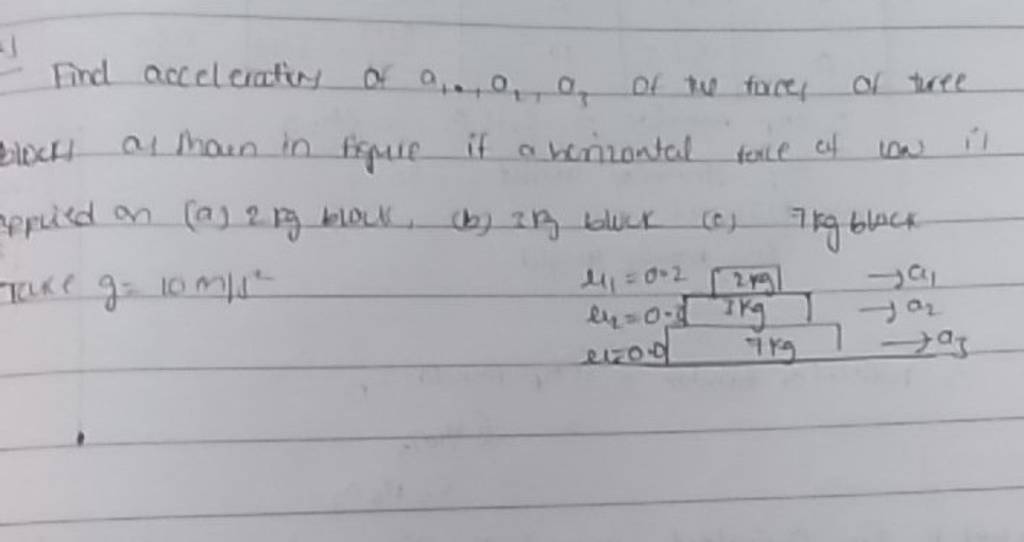 Find accelerations of a₁, a₂, a₃ of the forces of three
blocks as shown in figure if a horizontal force of 10N is
applied on (a) 2 kg block, (b) 3 kg block (c) 7 kg block
Take g = 10 m/s²
μ₁ = 0.2 2kg → a₁
μ₂ = 0. 3kg → a₂
μ = 0.0 7kg → a₃